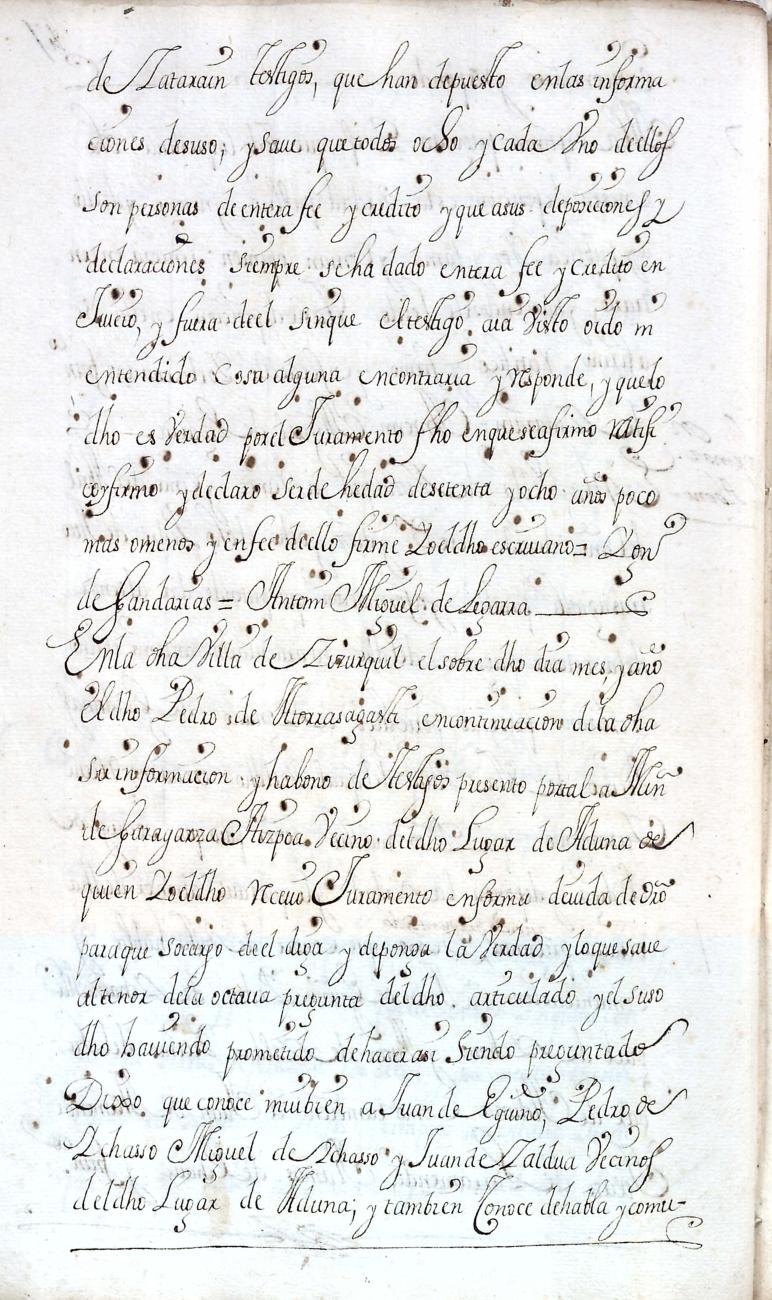 de Zatarain testigos, que han depuesto enlas informa
ciones desuso; y saue quetodos ocho y cada Vno deellos
son personas de entera fee y credito y que asus deposiciones y
declaraciones siempre seha dado entera fee y credito en
Juicio, y fuera deel sinque eltestigo aia Visto oido ni
entendido Cosa alguna encontraria y Responde, y quelo
dho es Verdad porel Juramento fho enqueseafirmo Ratifi
co y firmo y declaro serde hedad desetenta y ocho años poco
mas omenos y enfee deello firme Yoeldho escriuano=
de Landarias = Antemi Miguel de Legarra
Enla dha Villa de Zizurquil elsobre dho dia mes y año
El dho Pedro de Atorrasagasti encontinuacion dela dha
su informacion y habono de testigos presento portal a Min
de Laragarza Aizpea Vecino deldho Lugar de Aduna de
quien Yoeldho Reciui Juramento enforma deuida de dro
paraque socargo deel diga y deponga la Verdad y loquesaue
altenor dela octaua pregunta deldho articulado y el suso
dho hauiendo prometido dehacer asi siendo preguntado
Dixo que conoce muibien a Juan de Eguino, Pedro de
Ychasso Miguel de Ychasso y Juan de Zaldua Vecinos
deldho Lugar de Aduna; y tambien Conoce dehabla y comu-